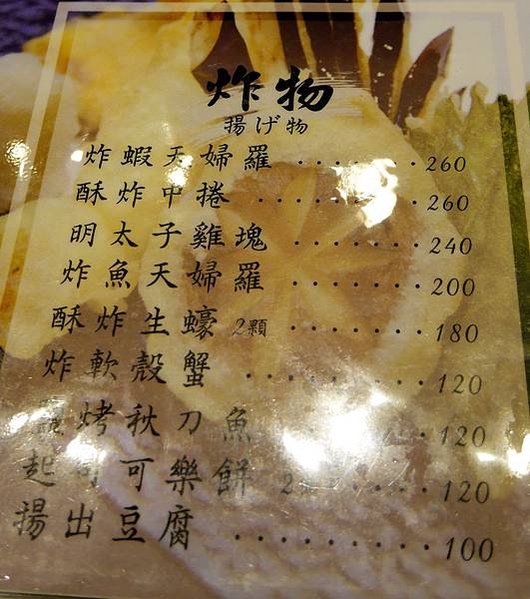 炸物
揚げ物
炸蝦天婦羅 ········ 260
酥炸中捲 ········· 260
明太子雞塊 ······· 240
炸魚天婦羅 ······· 200
酥炸生蠔 2顆 ······· 180
炸軟殼蟹 ········· 120
烤秋刀魚 ········ 120
起司可樂餅 2 ······· 120
揚出豆腐 ·········· 100